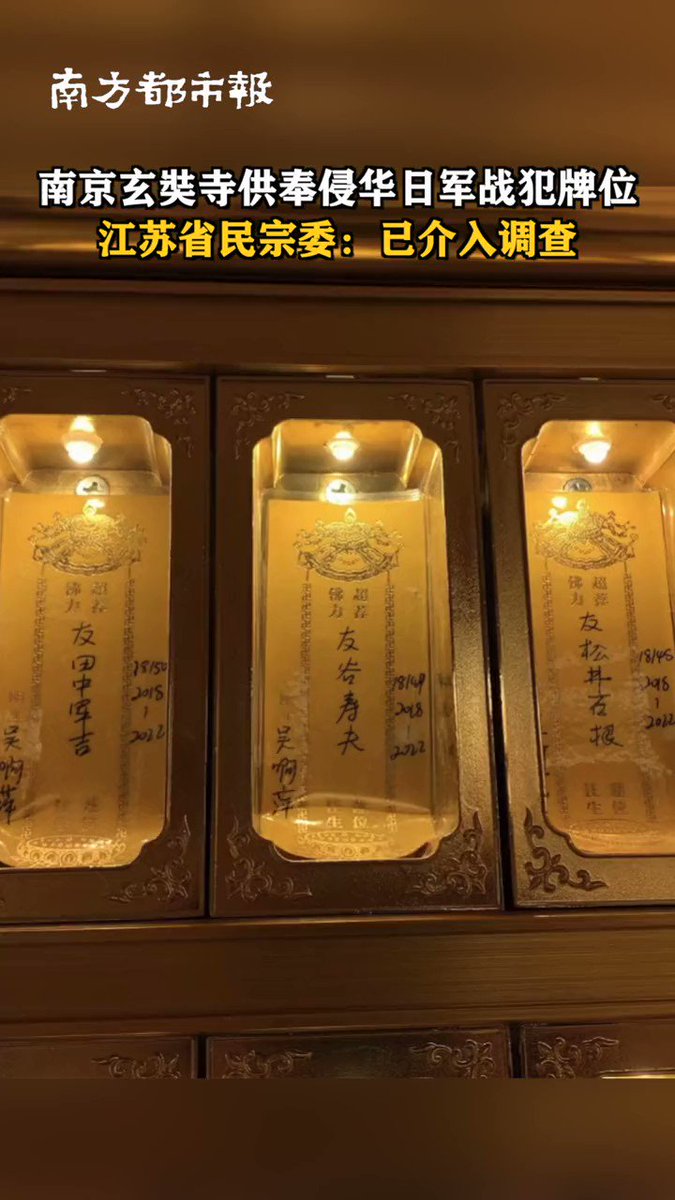 南方都市報
南京玄奘寺供奉侵华日军战犯牌位
江苏省民宗委：已介入调查
佛力
超荐
友田中军吉
2018
-
2022
吴啊萍
往生
莲位
佛力
超荐
友谷寿夫
18149
2018
-
2022
吴啊萍
往生
莲位
佛力
超荐
友松井石根
18148
2018
-
2022
往生
莲位